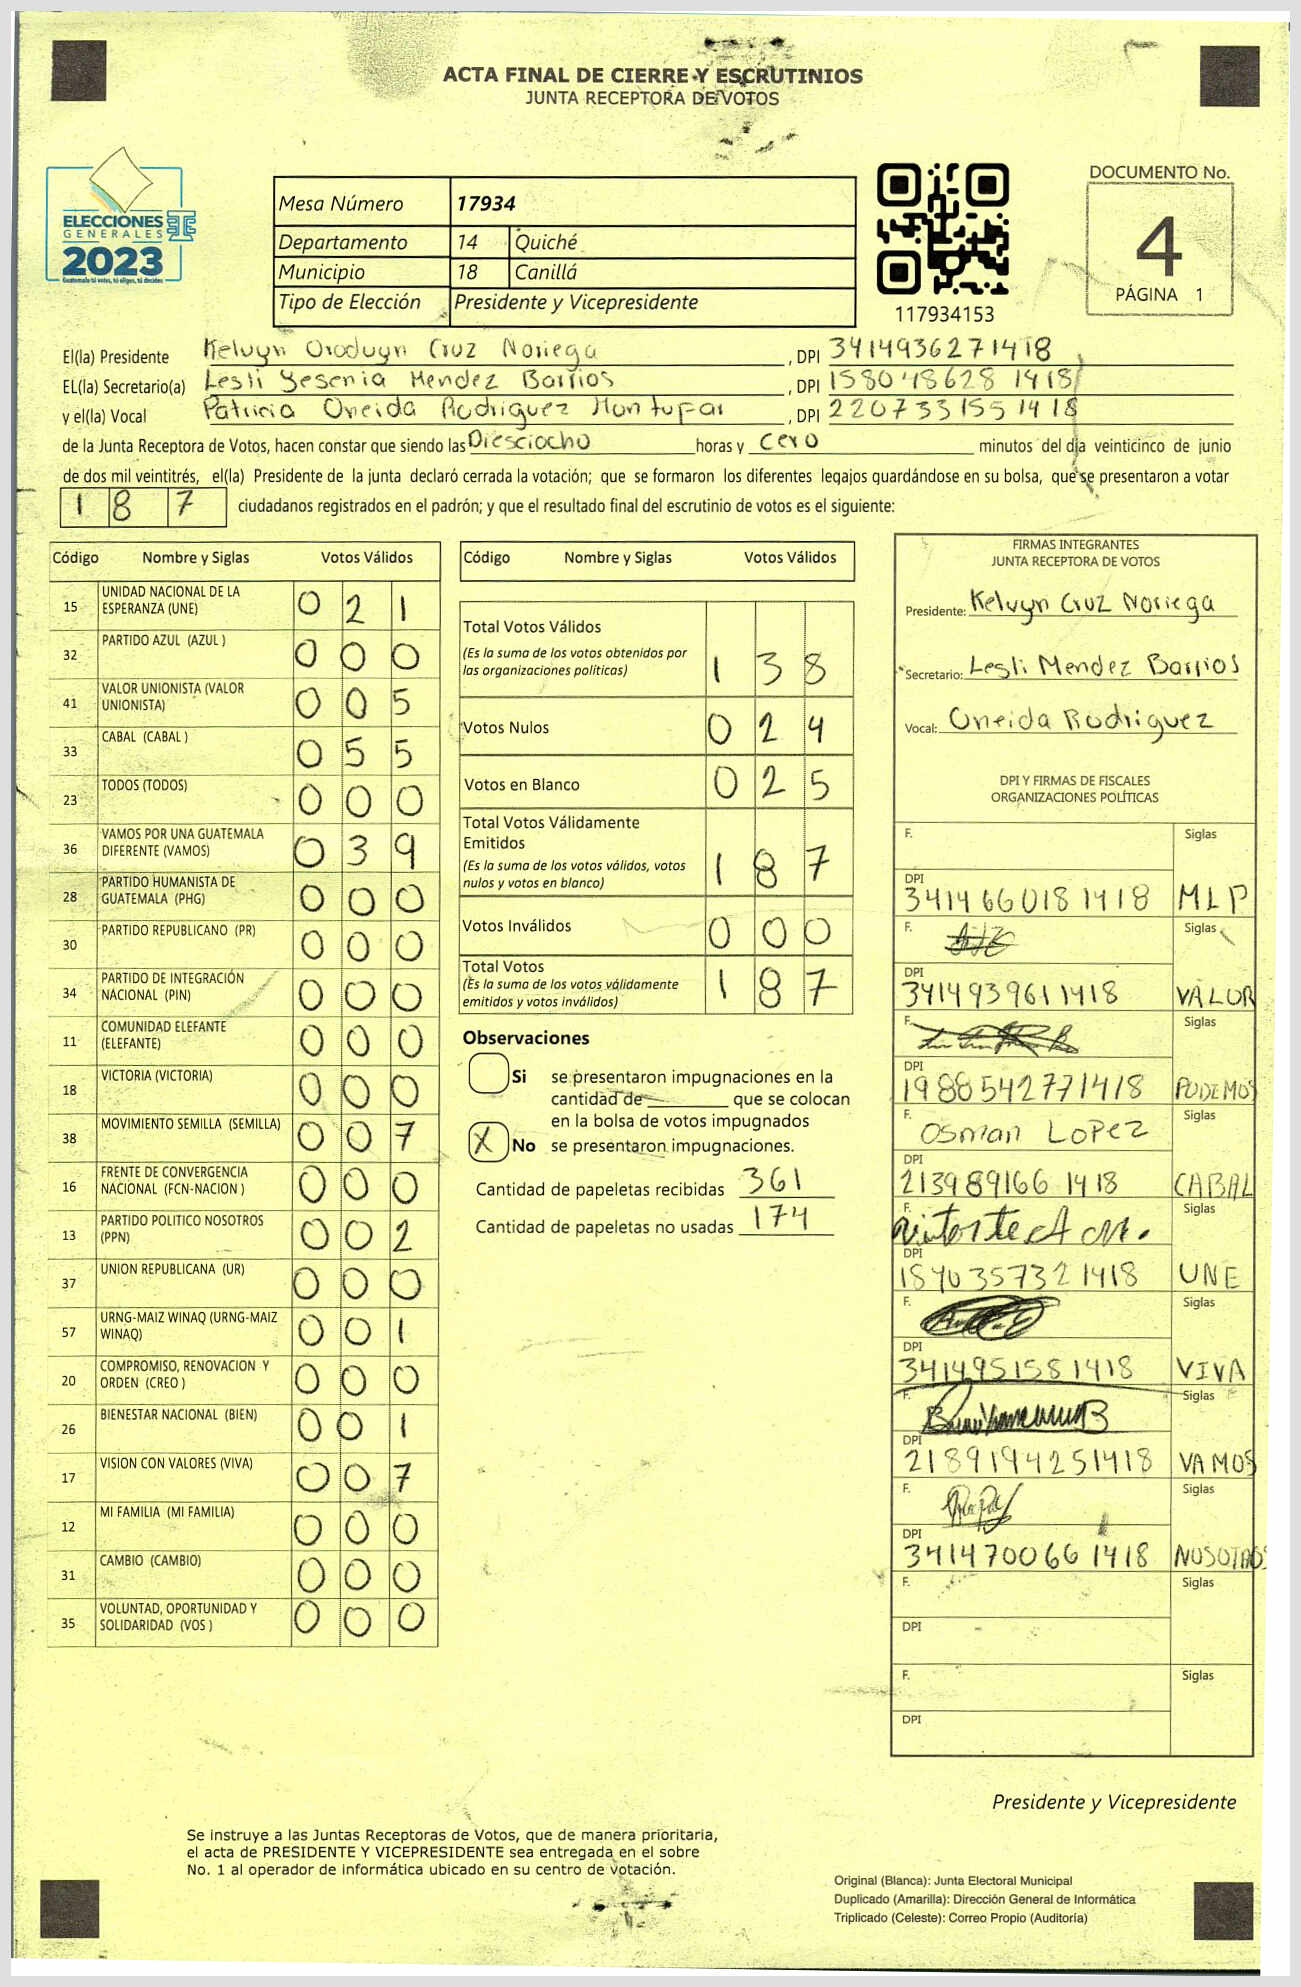 ACTA FINAL DE CIERRE Y ESCRUTINIOS
JUNTA RECEPTORA DE VOTOS
ELECCIONES
GENERALES
2023
Guatemala tú votas, tú eliges, tú decides
Mesa Número 17934
Departamento 14 Quiché
Municipio 18 Canillá
Tipo de Elección Presidente y Vicepresidente
117934153
DOCUMENTO No.
4
PÁGINA 1
El(la) Presidente Kelvyn Oroduyn Cruz Noriega , DPI 3414936271418
EL(la) Secretario(a) Lesli Yesenia Mendez Barrios , DPI 1580486281418
y el(la) Vocal Patricia Oneida Rodriguez Montufar , DPI 2207331551418
de la Junta Receptora de Votos, hacen constar que siendo las Diesciocho horas y cero minutos del día veinticinco de junio
de dos mil veintitrés, el(la) Presidente de la junta declaró cerrada la votación; que se formaron los diferentes legajos guardándose en su bolsa, que se presentaron a votar
187 ciudadanos registrados en el padrón; y que el resultado final del escrutinio de votos es el siguiente:
Código Nombre y Siglas Votos Válidos
15 UNIDAD NACIONAL DE LA ESPERANZA (UNE) 021
32 PARTIDO AZUL (AZUL ) 000
41 VALOR UNIONISTA (VALOR UNIONISTA) 005
33 CABAL (CABAL ) 055
23 TODOS (TODOS) 000
36 VAMOS POR UNA GUATEMALA DIFERENTE (VAMOS) 039
28 PARTIDO HUMANISTA DE GUATEMALA (PHG) 000
30 PARTIDO REPUBLICANO (PR) 000
34 PARTIDO DE INTEGRACIÓN NACIONAL (PIN) 000
11 COMUNIDAD ELEFANTE (ELEFANTE) 000
18 VICTORIA (VICTORIA) 000
38 MOVIMIENTO SEMILLA (SEMILLA) 007
16 FRENTE DE CONVERGENCIA NACIONAL (FCN-NACION ) 000
13 PARTIDO POLITICO NOSOTROS (PPN) 002
37 UNION REPUBLICANA (UR) 000
57 URNG-MAIZ WINAQ (URNG-MAIZ WINAQ) 001
20 COMPROMISO, RENOVACION Y ORDEN (CREO ) 000
26 BIENESTAR NACIONAL (BIEN) 001
17 VISION CON VALORES (VIVA) 007
12 MI FAMILIA (MI FAMILIA) 000
31 CAMBIO (CAMBIO) 000
35 VOLUNTAD, OPORTUNIDAD Y SOLIDARIDAD (VOS ) 000
Código Nombre y Siglas Votos Válidos
Total Votos Válidos
(Es la suma de los votos obtenidos por
las organizaciones políticas) 138
Votos Nulos 024
Votos en Blanco 025
Total Votos Válidamente
Emitidos
(Es la suma de los votos válidos, votos
nulos y votos en blanco) 187
Votos Inválidos 000
Total Votos
(Es la suma de los votos válidamente
emitidos y votos inválidos) 187
Observaciones
Si se presentaron impugnaciones en la
cantidad de ________ que se colocan
en la bolsa de votos impugnados
X No se presentaron impugnaciones.
Cantidad de papeletas recibidas 361
Cantidad de papeletas no usadas 174
FIRMAS INTEGRANTES
JUNTA RECEPTORA DE VOTOS
Presidente: Kelvyn Cruz Noriega
Secretario: Lesli Mendez Barrios
Vocal: Oneida Rodriguez
DPI Y FIRMAS DE FISCALES
ORGANIZACIONES POLÍTICAS
F. Siglas
DPI
3414660181418 MLP
F. Siglas
DPI
3414939611418 VALOR
F. Siglas
DPI
1988542771418 PODEMOS
F. Siglas
Osman Lopez
DPI
2139891661418 CABAL
F. Siglas
DPI
1840357321418 UNE
F. Siglas
DPI
3414951581418 VIVA
F. Siglas
DPI
2189194251418 VAMOS
F. Siglas
DPI
3414700661418 NOSOTROS
F. Siglas
DPI
F. Siglas
DPI
Presidente y Vicepresidente
Se instruye a las Juntas Receptoras de Votos, que de manera prioritaria,
el acta de PRESIDENTE Y VICEPRESIDENTE sea entregada en el sobre
No. 1 al operador de informática ubicado en su centro de votación.
Original (Blanca): Junta Electoral Municipal
Duplicado (Amarilla): Dirección General de Informática
Triplicado (Celeste): Correo Propio (Auditoría)